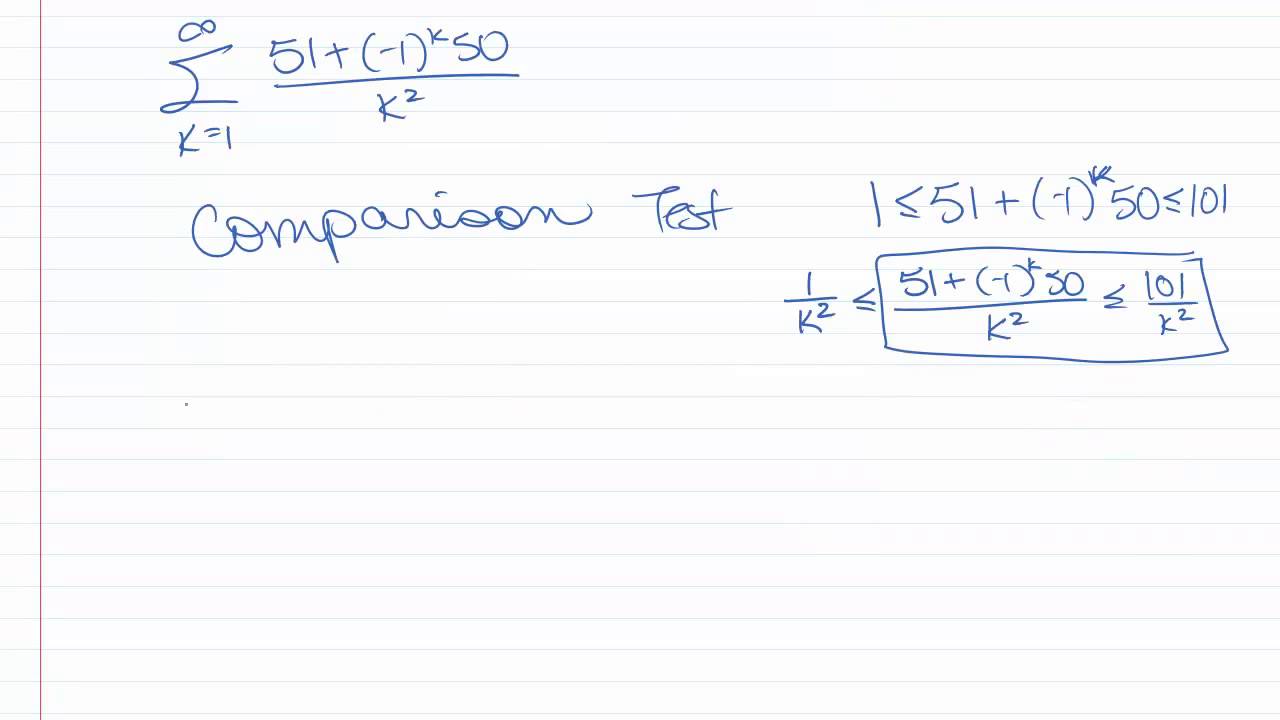 ∞
∑ (51+(-1)^k 50)/k²
k=1
Comparison Test
1 ≤ 51 + (-1)^k 50 ≤ 101
1/k² ≤ (51+(-1)^k 50)/k² ≤ 101/k²